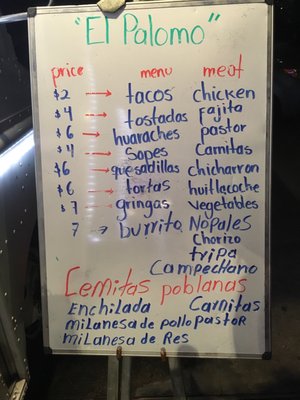 "El Palomo"
price menu meat
$2 → tacos chicken
$4 → tostadas Fajita
$6 → huaraches pastor
$4 → Sopes Carnitas
$6 → quesadillas chicharron
$6 → tortas huitlacoche
$7 → gringas vegetables
7 → burrito Nopales
Chorizo
tripa
Campechano
Cemitas poblanas
Enchilada Carnitas
milanesa de pollo pastor
milanesa de Res